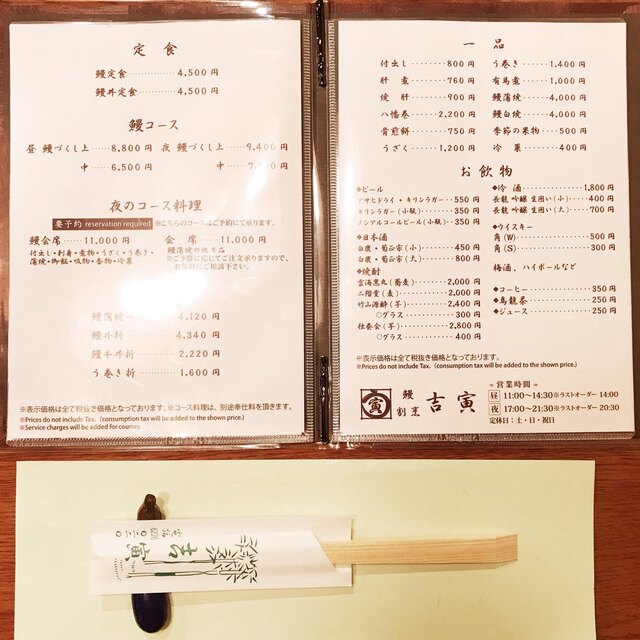 定食
鰻定食 4,500円
鰻丼定食 4,500円
鰻コース
昼 鰻づくし上 8,800円 夜 鰻づくし上 9,400円
中 6,500円 中
夜のコース料理
要予約 reservation required ※こちらのコースはご予約にて承ります。
鰻会席 11,000円 会席 11,000円
付出し・刺身・煮物・うざく・う巻き・
蒲焼・御飯・吸物・香物・冷菓
鰻蒲焼の他1品
※ご予算に応じてご注文承りますので、
お気軽にご相談下さい。
鰻蒲焼 4,120円
鰻丼折 4,340円
鰻半丼折 2,220円
う巻き折 1,600円
※表示価格は全て税抜き価格となっております。※コース料理は、別途奉仕料を頂きます。
※Prices do not include Tax. (consumption tax will be added to the shown price.)
※Service charges will be added for courses.
一品
付出し 800円
肝煮 760円
焼肝 900円
八幡巻 2,200円
骨煎餅 750円
うざく 1,200円
う巻き 1,400円
有馬煮 1,000円
鰻蒲焼 4,000円
鰻白焼 4,000円
季節の果物 500円
冷菓 400円
お飲物
◆ビール
アサヒドライ・キリンラガー 550円
キリンラガー(小瓶) 350円
ノンアルコールビール(小瓶) 350円
◆日本酒
白鹿・菊正宗(小) 450円
白鹿・菊正宗(大) 800円
◆焼酎
雲海黒丸(蕎麦) 2,000円
二階堂(麦) 2,000円
竹山源酔(芋) 2,400円
○グラス 300円
社奏会(芋) 2,800円
○グラス 400円
◆冷酒 1,800円
長龍 吟醸 生囲い(小) 400円
長龍 吟醸 生囲い(大) 700円
◆ウイスキー
角(W) 500円
角(S) 300円
梅酒、ハイボールなど
◆コーヒー 350円
◆烏龍茶 250円
◆ジュース 250円
※表示価格は全て税抜き価格となっております。
※Prices do not include Tax. (consumption tax will be added to the shown price.)
寅 鰻割烹 吉寅
= 営業時間 =
昼 11:00〜14:30※ラストオーダー 14:00
夜 17:00〜21:30※ラストオーダー 20:30
定休日：土・日・祝日
吉寅